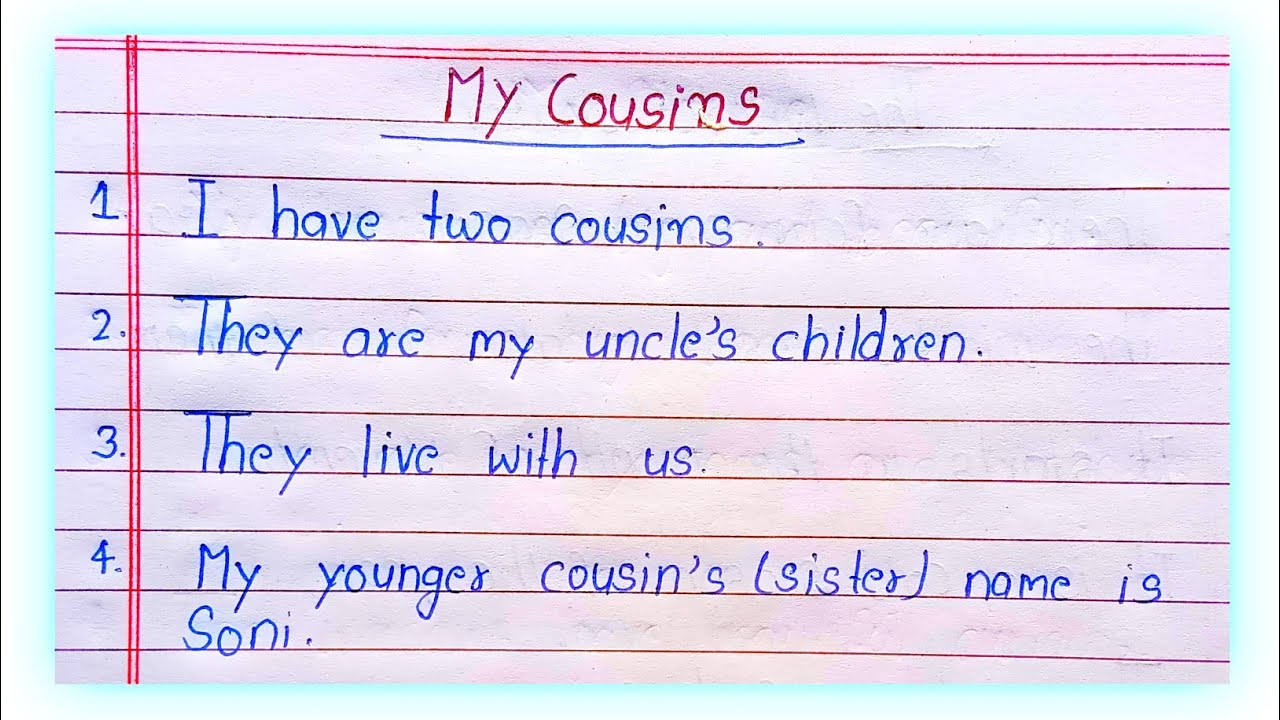 My Cousins
1. I have two cousins.
2. They are my uncle's children.
3. They live with us.
4. My younger cousin's (sister) name is
Soni.